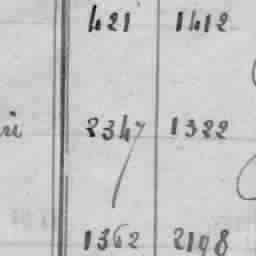 421 1412
2347 1322
1362 2198